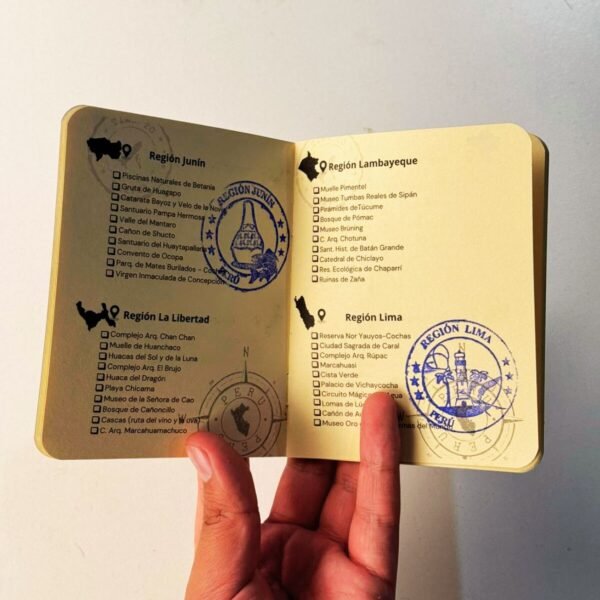 Región Junín
Piscinas Naturales de Betania
Gruta de Huagapo
Catarata Bayoz y Velo de la
Santuario Pampa Hermosa
Valle del Mantaro
Cañon de Shucto
Santuario del Huaytapallana
Convento de Ocopa
Parq. de Mates Burilados -
Virgen Inmaculada de Concepción
REGIÓN JUNÍN
PERÚ
Región La Libertad
Complejo Arq. Chan Chan
Muelle de Huanchaco
Huacas del Sol y de la Luna
Complejo Arq. El Brujo
Huaca del Dragón
Playa Chicama
Museo de la Señora de Cao
Bosque de Cañoncillo
Cascas (ruta del vino y la uva)
C. Arq. Marcahuamachuco
N
PERU
PERU
Región Lambayeque
Muelle Pimentel
Museo Tumbas Reales de Sipán
Pirámides deTúcume
Bosque de Pómac
Museo Bruning
C. Arq. Chotuna
Sant. Hist. de Batán Grande
Catedral de Chiclayo
Res. Ecológica de Chaparrí
Ruinas de Zaña
Región Lima
Reserva Nor Yauyos-Cochas
Ciudad Sagrada de Caral
Complejo Arq. Rúpac
Marcahuasi
Cista Verde
Palacio de Vichaycocha
Circuito Mágico
Lomas de
Cañón de
Museo Oro
REGIÓN LIMA
PERÚ
PERU